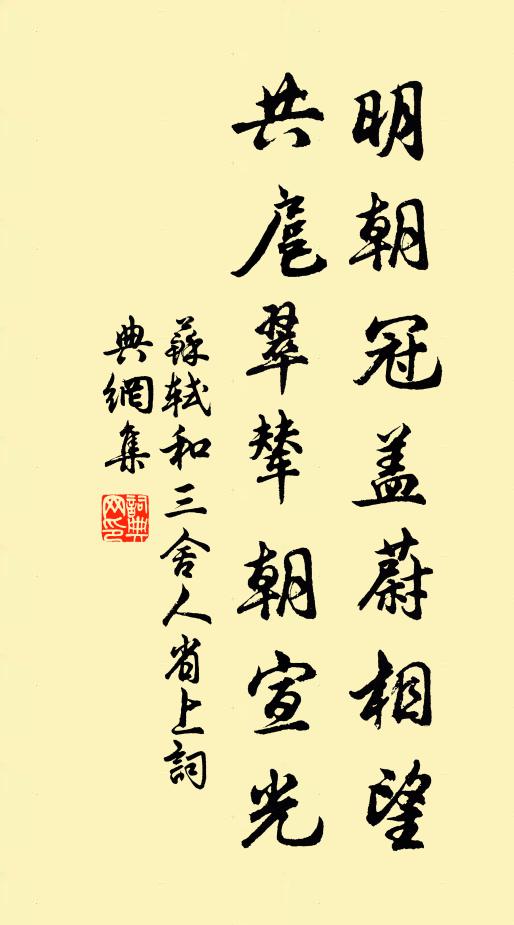 明朝冠盖蔚相望
共扈翠輦朝宣光
蘇軾和三舍人省上詞
典網集
詞典网印